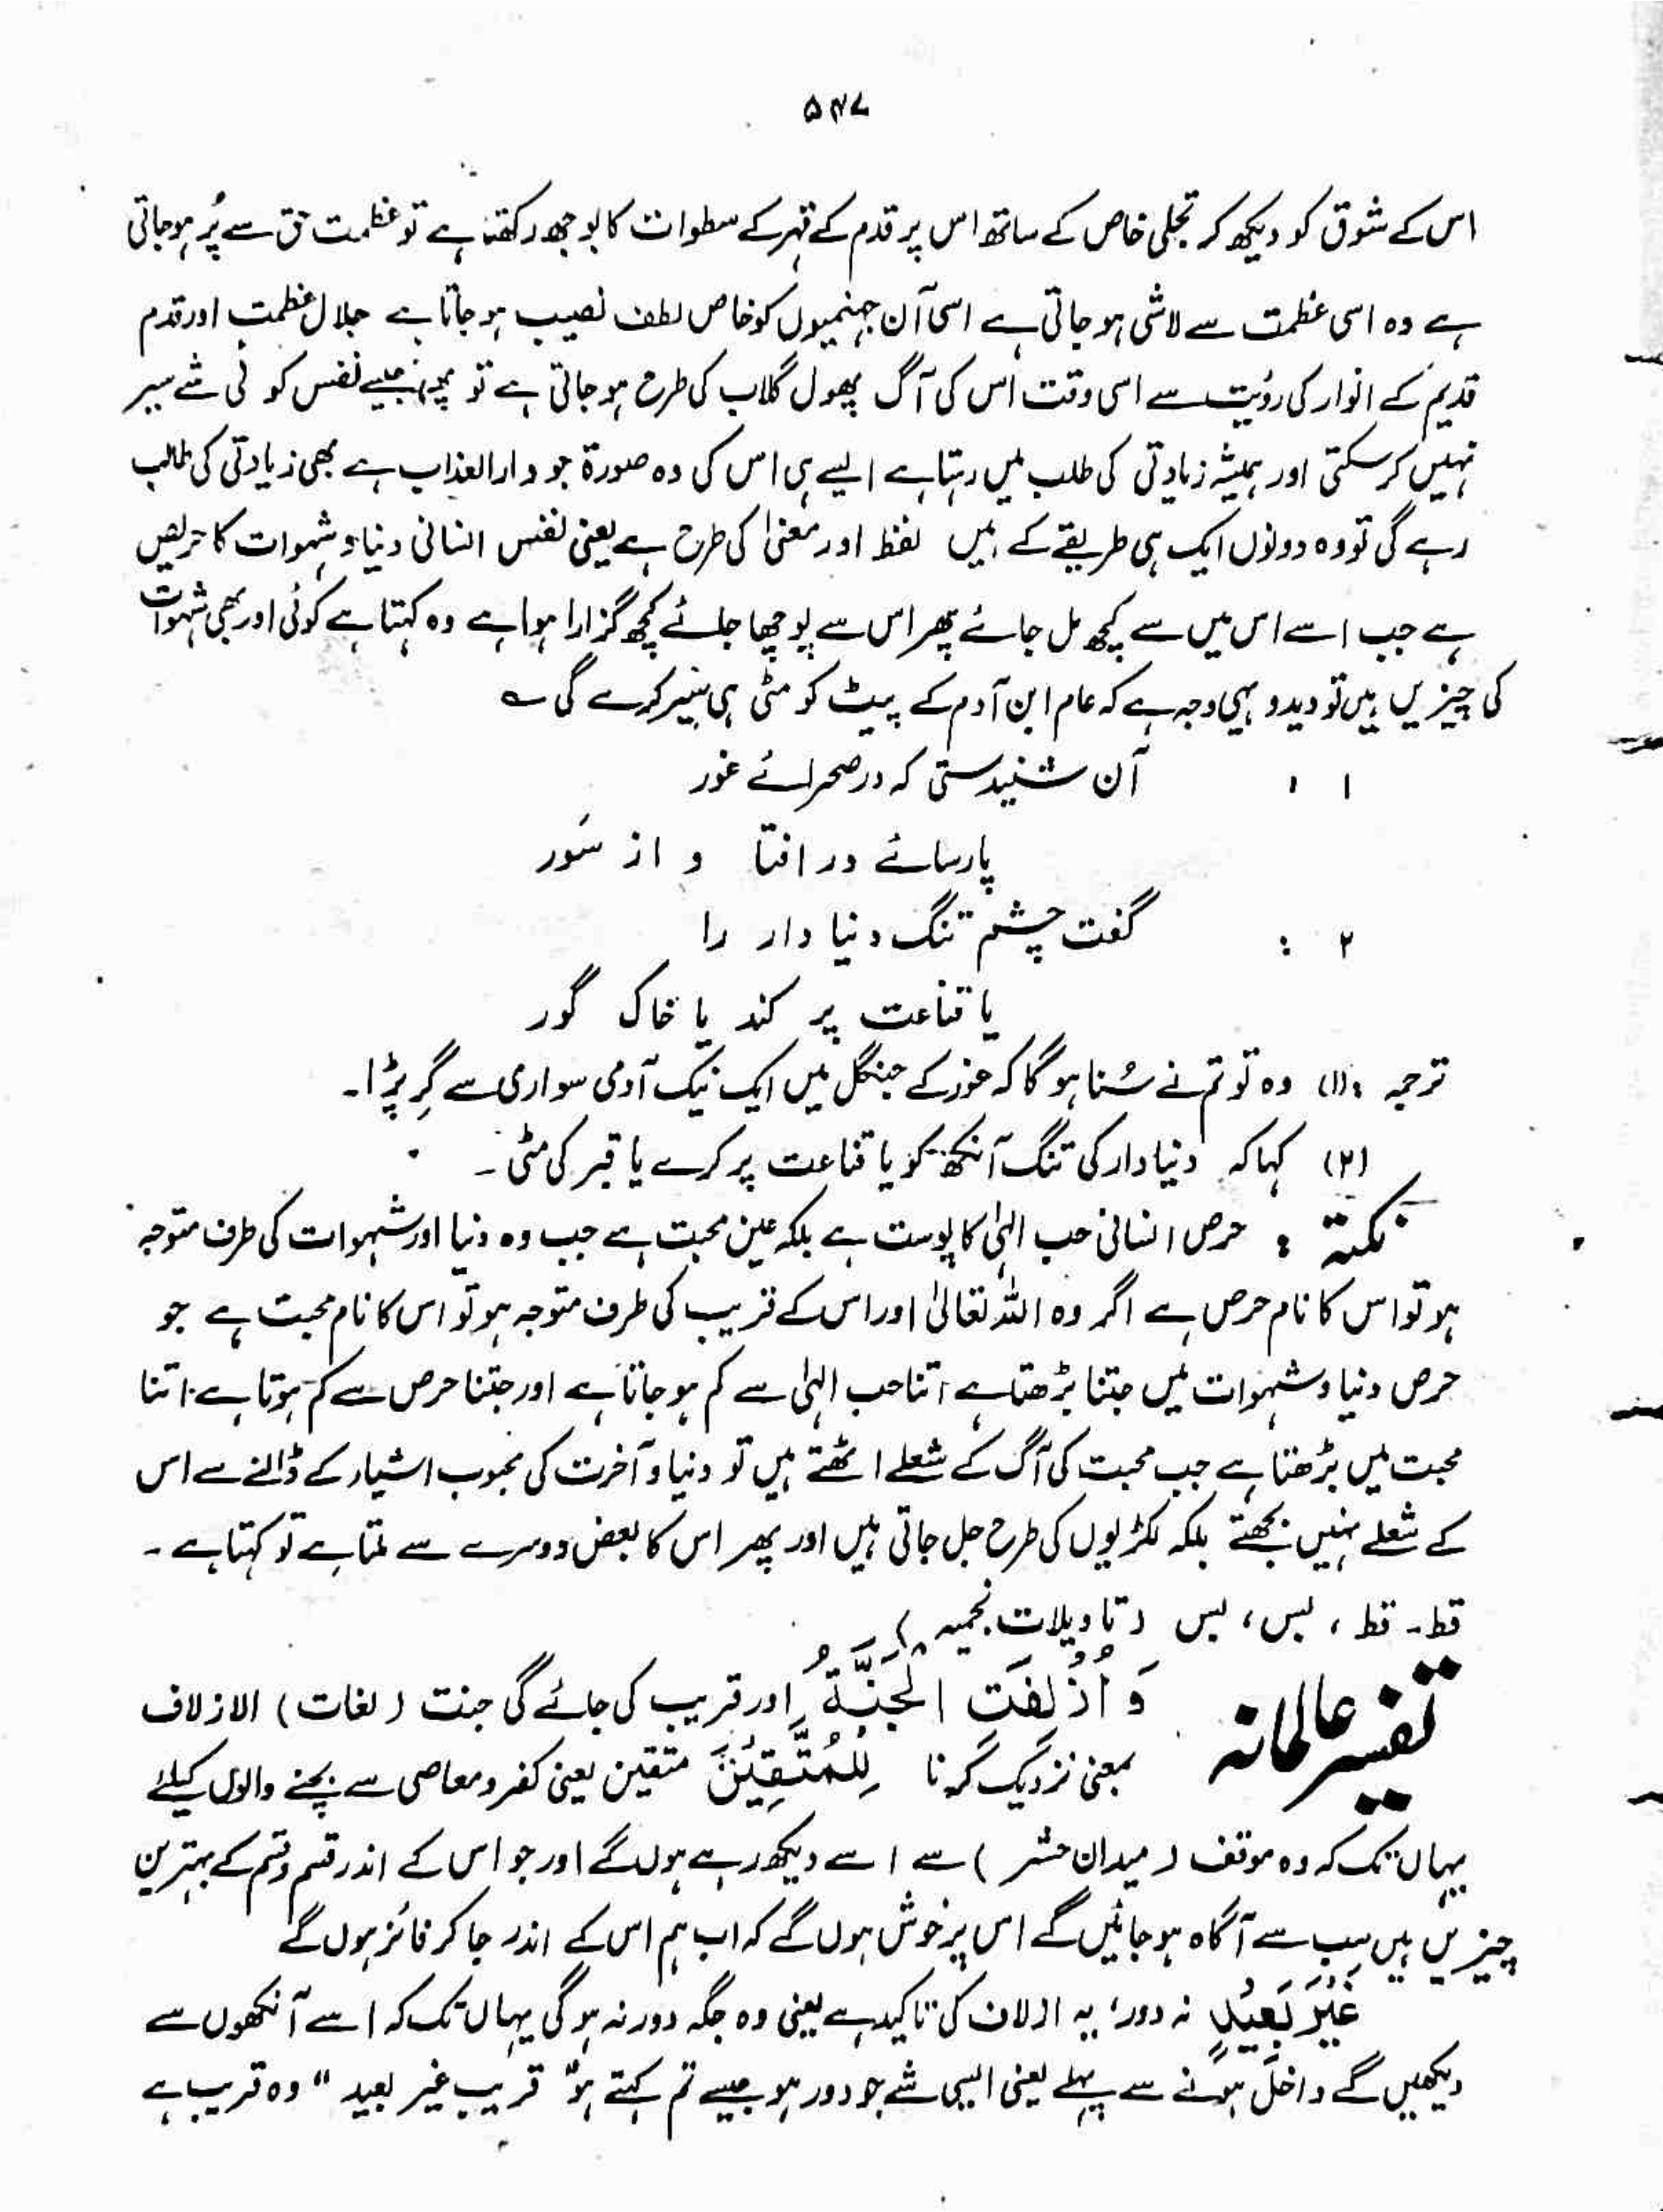 ۵۴۷
اس کے شوق کو دیکھ کر تجلی خاص کے ساتھ اس پر قدم کے قہر کے سطوات کا بوجھ رکھتا ہے تو عظمت حق سے پُر ہو جاتی
ہے وہ اسی عظمت سے لاشی ہو جاتی ہے اسی آن جہنمیوں کو خاص لطف نصیب ہو جاتا ہے جلال عظمت اور قدم
قدیم کے انوار کی رؤیت سے اسی وقت اُس کی آگ پھول گلاب کی طرح ہو جاتی ہے تو پھر جیسے نفس کو کوئی شے سیر
نہیں کر سکتی اور ہمیشہ زیادتی کی طلب میں رہتا ہے ایسے ہی اس کی وہ صورۃ جو دار العذاب ہے بھی زیادتی کی طالب
رہے گی تو وہ دونوں ایک ہی طریقے کے ہیں لفظ اور معنیٰ کی طرح ہے یعنی نفس انسانی دنیا و شہوات کا حریص
ہے جب اسے اس میں سے کچھ مل جائے پھر اس سے پوچھا جائے کچھ گزارا ہوا ہے وہ کہتا ہے کوئی اور بھی شہوات
کی چیزیں ہیں تو دیدو یہی وجہ ہے کہ عام ابن آدم کے پیٹ کو مٹی ہی سیر کرے گی ؎
۱ : آن شنیدستی کہ در صحرائے غور
پارسائے در افتا و از سَور
۲ : گفت چشم تنگ دنیا دار را
یا قناعت پر کند یا خاک گور
ترجمہ :(۱) وہ تو تم نے سُنا ہو گا کہ غور کے جنگل میں ایک نیک آدمی سواری سے گِر پڑا۔
(۲) کہا کہ دنیا دار کی تنگ آنکھ کو یا قناعت پر کرے یا قبر کی مٹی ۔
نکتہ : حرص انسانی حب الہٰی کا پوست ہے بلکہ عین محبت ہے جب وہ دنیا اور شہوات کی طرف متوجہ
ہو تو اس کا نام حرص ہے اگر وہ اللہ تعالیٰ اور اس کے قریب کی طرف متوجہ ہو تو اس کا نام محبت ہے جو
حرص دنیا و شہوات میں جتنا بڑھتا ہے اتنا حب الہٰی سے کم ہو جاتا ہے اور جتنا حرص سے کم ہوتا ہے اتنا
محبت میں بڑھتا ہے جب محبت کی آگ کے شعلے اٹھتے ہیں تو دنیا و آخرت کی محبوب اشیاء کے ڈالنے سے اس
کے شعلے نہیں بجھتے بلکہ لکڑیوں کی طرح جل جاتی ہیں اور پھر اس کا بعض دوسرے سے ملتا ہے تو کہتا ہے ۔
قط۔ قط ، بس ، بس (تاویلات نجمیہ)
تفسیر عالمانہ وَ اُزْلِفَتِ الْجَنَّةُ اور قریب کی جائے گی جنت (لغات) الازلاف
بمعنی نزدیک کرنا لِلْمُتَّقِیْنَ متقین یعنی کفر و معاصی سے بچنے والوں کیلئے
یہاں تک کہ وہ موقف (میدان حشر) سے اسے دیکھ رہے ہوں گے اور جو اس کے اندر قسم و قسم کے بہترین
چیزیں ہیں سب سے آگاہ ہو جائیں گے اس پر خوش ہوں گے کہ اب ہم اس کے اندر جا کر فائز ہوں گے
غَیْرَ بَعِیْدٍ نہ دور، یہ ازلاف کی تاکید ہے یعنی وہ جگہ دور نہ ہو گی یہاں تک کہ اسے آنکھوں سے
دیکھیں گے داخل ہونے سے پہلے یعنی ایسی شے جو دور ہو جیسے تم کہتے ہو " قریب غیر بعید " وہ قریب ہے